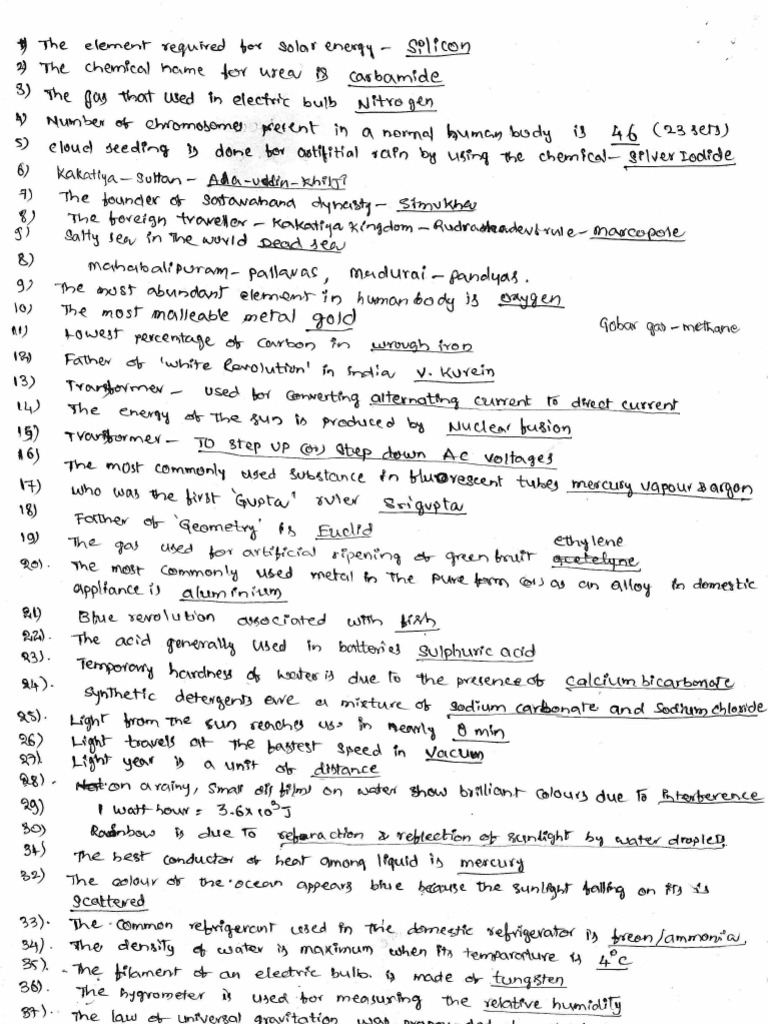 1) The element required for solar energy - Silicon
2) The chemical name for urea is carbamide
3) The gas that used in electric bulb Nitrogen
4) Number of chromosomes present in a normal human body is 46 (23 sets)
5) cloud seeding is done for astifitial rain by using the chemical - Silver Iodide
6) Kakatiya - Sultan - Alla-uddin-Khilji
7) The founder of Satavahana dynasty - Simukha
8) The foreign traveller - Kakatiya kingdom - Rudramadevi rule - marcopole
9) Salty sea in the world Dead sea
8) Mahabalipuram - pallavas, Madurai - pandyas.
9) The most abundant element in human body is oxygen
10) The most malleable metal gold
Gobar gas - methane
11) Lowest percentage of carbon in wrough iron
12) Father of 'white Revolution' in India V. Kurein
13) Transformer - used for converting alternating current to direct current
14) The energy of the sun is produced by Nuclear fusion
15) Transformer - To step up (or) step down Ac voltages
16) The most commonly used substance in fluorescent tubes mercury vapour & argon
17) who was the first 'Gupta' ruler Srigupta
18) Father of 'Geometry' is Euclid
19) The gas used for artificial ripening of green fruit ethylene acetelyne
20). The most commonly used metal in the pure form (or) as an alloy in domestic
appliance is aluminium
21) Blue revolution associated with fish
22). The acid generally used in batteries Sulphuric acid
23). Temporary hardness of water is due to the presence of calcium bicarbonate
24). Synthetic detergents are a mixture of sodium carbonate and Sodium chloride
25). Light from the sun reaches us in nearly 8 min
26) Light travels at the fastest speed in vacum
27). Light year is a unit of distance
28). Not on a rainy, small oil films on water show brilliant colours due to interference
29) 1 watt hour = 3.6x10³J
30) Rainbow is due to refaraction & reflection of sunlight by water droplets
31) The best conductor of heat among liquid is mercury
32) The colour of the ocean appears blue because the sunlight falling on its is
scattered
33). The common refrigerant used in the domestic refrigerator is freon/ammonia,
34). The density of water is maximum when its temparature is 4°C
35). The filament of an electric bulb. is made of tungsten
36). The hygrometer is used for measuring the relative humidity
37). The law of universal gravitation was